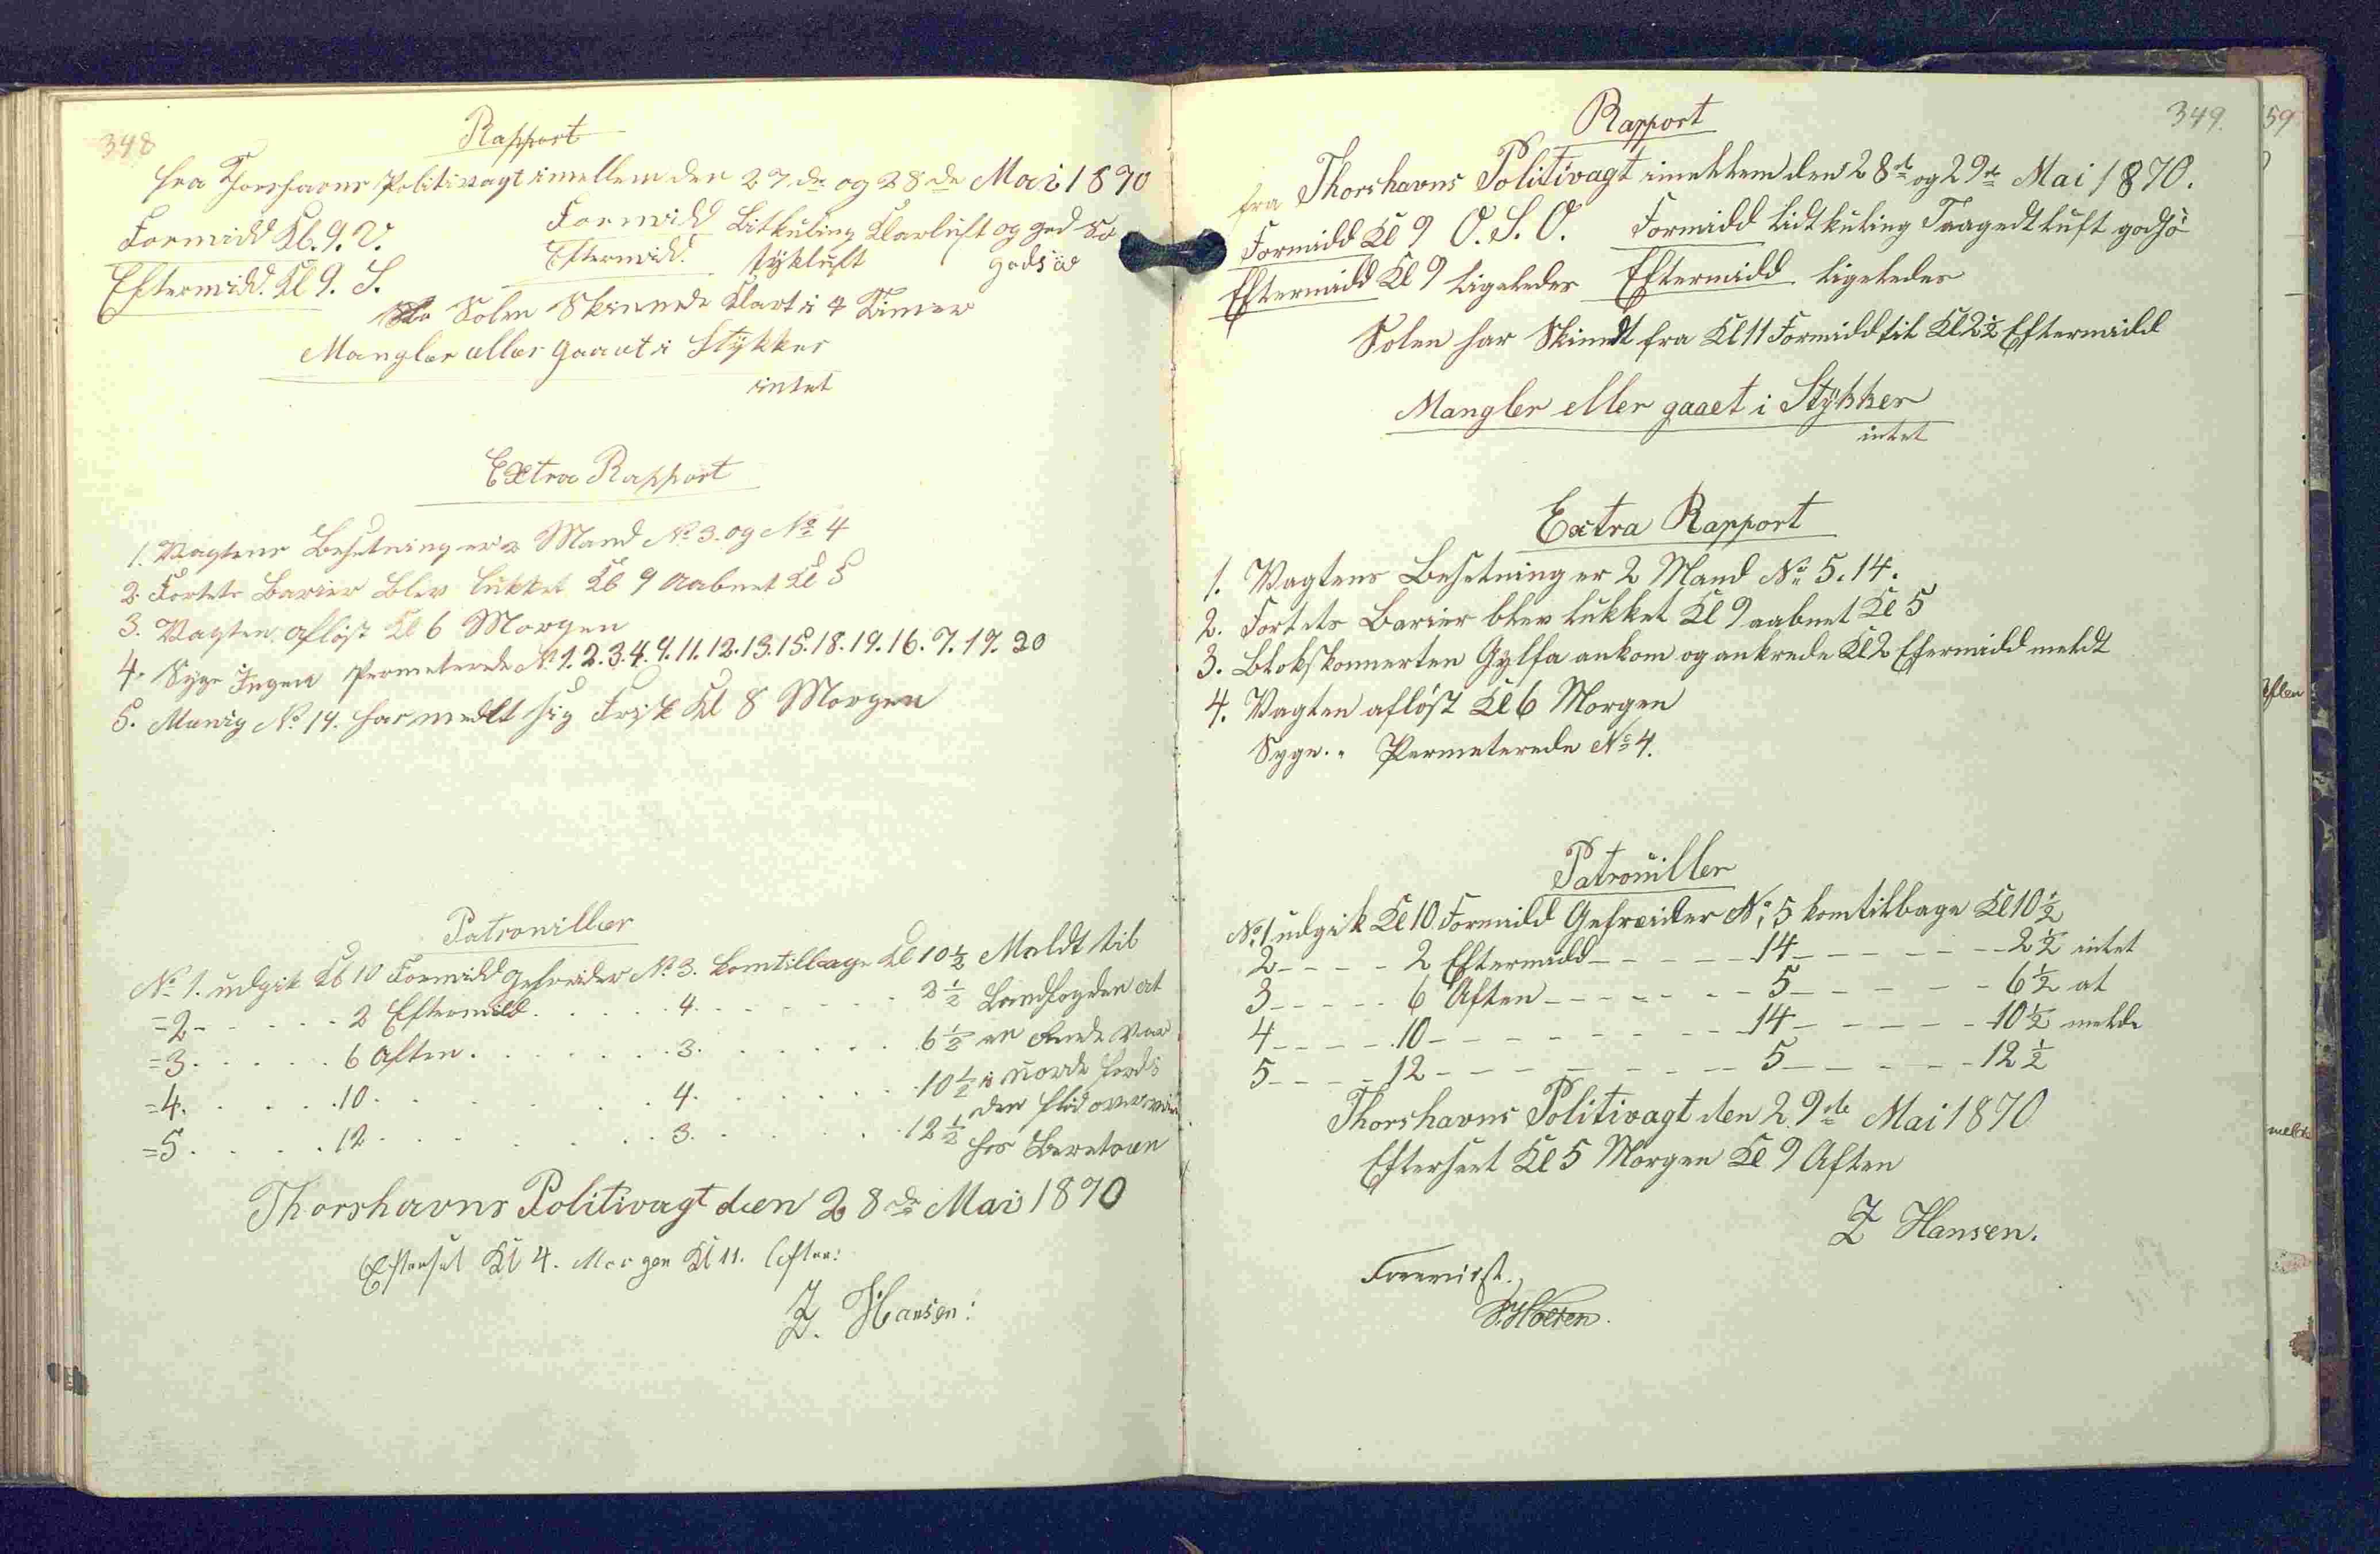 348
Rapport
fra Thorshavns Politivagt imellem den 27de og 28de Mai 1870
Formidd Kl. 9. V. Formidd Litkuling Klarluft og god Sö
Eftermidd. Kl 9. S. Eftermidd. tÿkluft godsöe
Solen Skinnede Klart i 4 Timer
Mangler eller gaaet i Stÿkker
intet
Extra Rapport
1. Vagtens Besetning er 2 Mand No 3. og No 4
2. Fortets Barier blev lukket Kl 9 Aabnet Kl 5
3. Vagten aflöst Kl 6 Morgen
4. Syge Ingen Permeterede No 1. 2. 3. 4. 9. 11. 12. 13. 15. 18. 19. 16. 7. 17. 20
5. No 14. har meldt sig Frisk Kl 8 Morgen
Patrouiller
No 1. udgik Kl 10 Formidd Gefreider No 3. komtilbage Kl 10 ½ Meldt til
=2 - - - - 2 Eftermidd. . . . . 4. . . . . . 2 ½ Landfogden at
=3. . . . . 6 Aften. . . . . . . 3. . . . . . 6 ½ en var
=4. . . . . 10. . . . . . . . 4. . . . . . 10 ½ i
=5. . . . . 12. . . . . . . . 3. . . . . . 12 ½ den
hos
Thorshavns Politivagt den 28de Mai 1870
Efterset Kl 4. Morgen Kl 11. Aften:
Z. Hansen:
349.
Rapport
fra Thorshavns Politivagt imellem den 28de og 29de Mai 1870.
Formidd Kl 9 O. S. O. Formidd Lidtkuling Taagedtluft godsö
Eftermidd Kl 9 ligeledes Eftermidd ligeledes
Solen har Skindt fra Kl 11 Formidd til Kl 2 ½ Eftermidd
Mangler eller gaaet i Stÿkker
intet
Extra Rapport
1. Vagtens Besetning er 2 Mand No 5. 14.
2. Fortets Barier blev lukket Kl 9 aabnet Kl 5
3. Blokskonnerten Gylfa ankom og ankrede Kl 2 Efermidd meldt
4. Vagten aflöst Kl 6 Morgen
Syge. " Permeterede No 4.
Patrouiller
No 1 udgik Kl 10 Formidd Gefreider No 5 komtilbage Kl 10 ½
2 - - - - 2 Eftermidd - - - - - 14 - - - - - - 2 ½ intet
3 - - - - 6 Aften - - - - - - - 5 - - - - - - 6 ½ at
4 - - - - 10 - - - - - - - - 14 - - - - - - 10 ½ melde
5 - - - - 12 - - - - - - - - 5 - - - - - - 12 ½
Thorshavns Politivagt den 29de Mai 1870
Efterseet Kl 5 Morgen Kl 9 Aften
Z Hansen.
Foreviist.
59
melde